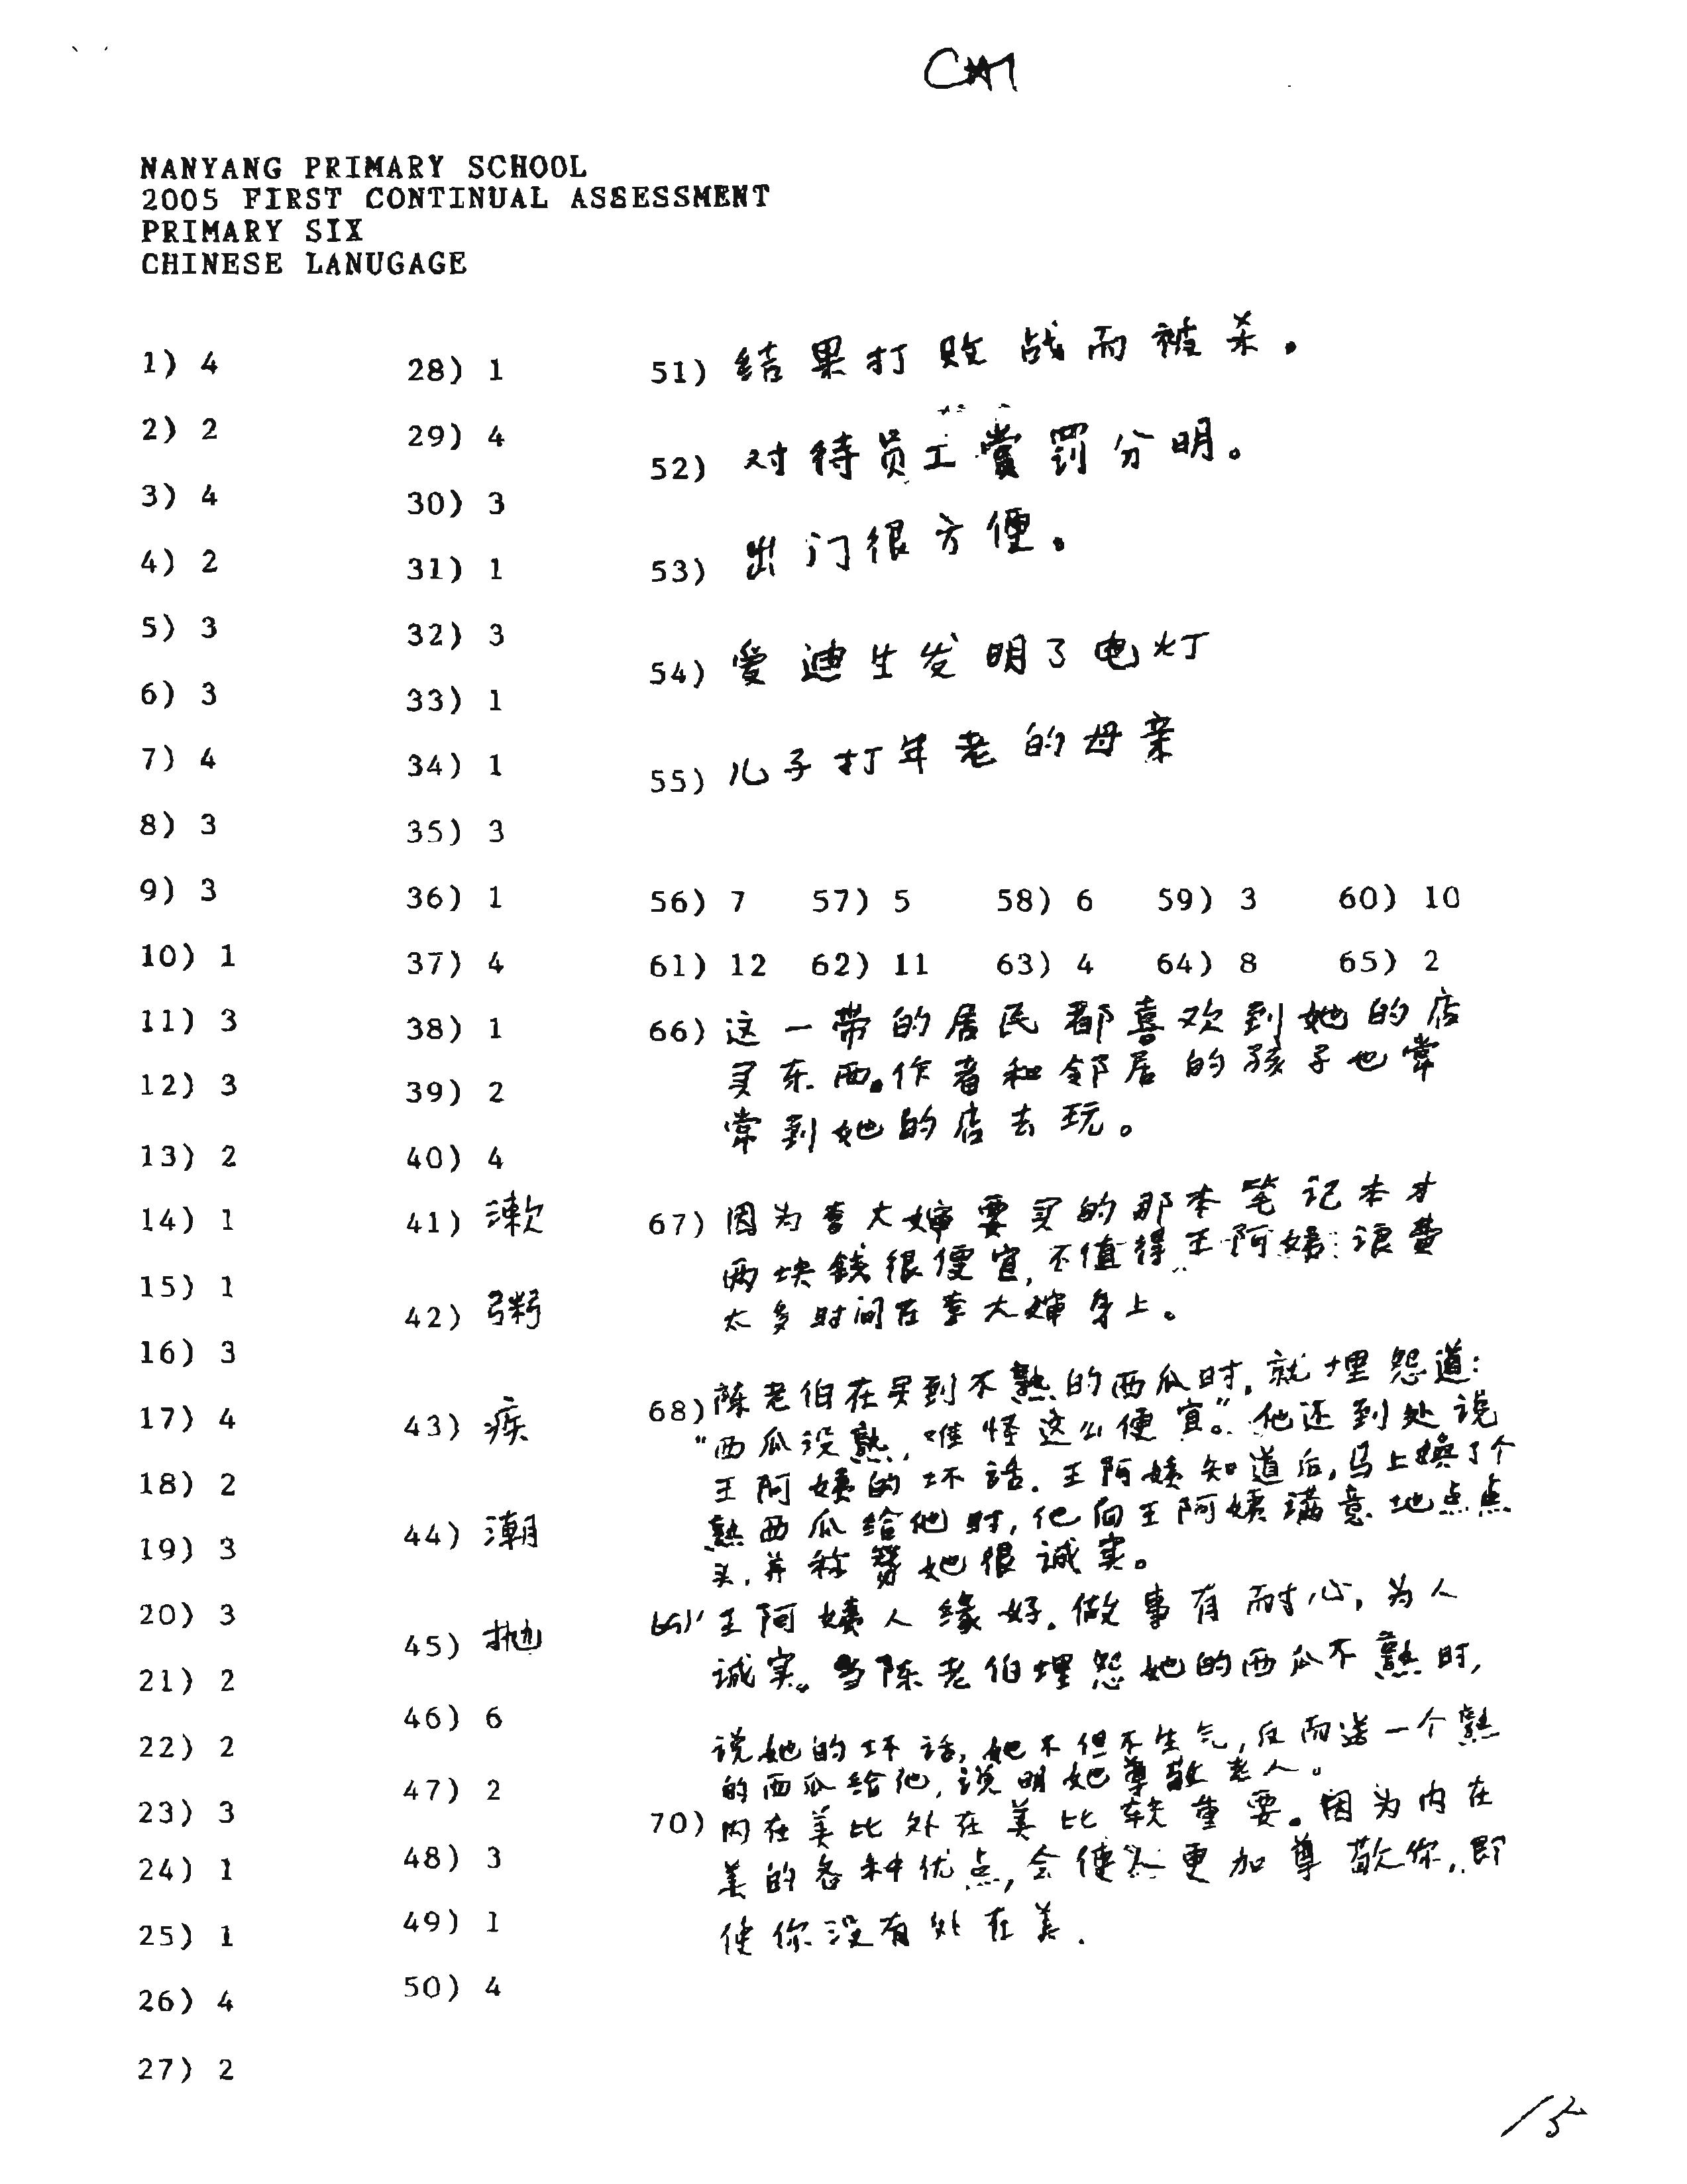 CA1
NANYANG PRIMARY SCHOOL
2005 FIRST CONTINUAL ASSESSMENT
PRIMARY SIX
CHINESE LANUGAGE
1) 4
2) 2
3) 4
4) 2
5) 3
6) 3
7) 4
8) 3
9) 3
10) 1
11) 3
12) 3
13) 2
14) 1
15) 1
16) 3
17) 4
18) 2
19) 3
20) 3
21) 2
22) 2
23) 3
24) 1
25) 1
26) 4
27) 2
28) 1
29) 4
30) 3
31) 1
32) 3
33) 1
34) 1
35) 3
36) 1
37) 4
38) 1
39) 2
40) 4
41) 漱
42) 粥
43) 疾
44) 潮
45) 抛
46) 6
47) 2
48) 3
49) 1
50) 4
51) 结果打败战而被杀。
52) 对待员工赏罚分明。
53) 出门很方便。
54) 爱迪生发明了电灯
55) 儿子打年老的母亲
56) 7 57) 5 58) 6 59) 3 60) 10
61) 12 62) 11 63) 4 64) 8 65) 2
66) 这一带的居民都喜欢到她的店
买东西。作者和邻居的孩子也常
常到她的店去玩。
67) 因为李大婶要买的那本笔记本才
两块钱很便宜,不值得王阿姨浪费
太多时间在李大婶身上。
68) 陈老伯在买到不熟的西瓜时,就埋怨道:
“西瓜没熟,难怪这么便宜。”他还到处说
王阿姨的坏话.王阿姨知道后,马上换了个
熟西瓜给他时,他向王阿姨满意地点点
头,并称赞她很诚实。
69) 王阿姨人缘好.做事有耐心,为人
诚实。当陈老伯埋怨她的西瓜不熟时,
说她的坏话,她不但不生气,反而送一个熟
的西瓜给他,说明她尊敬老人。
70) 内在美比外在美比较重要。因为内在
美的各种优点,会使人更加尊敬你,即
使你没有外在美.
15